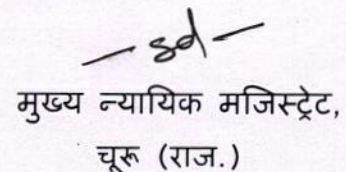 — sd —
मुख्य न्यायिक मजिस्ट्रेट,
चूरू (राज.)